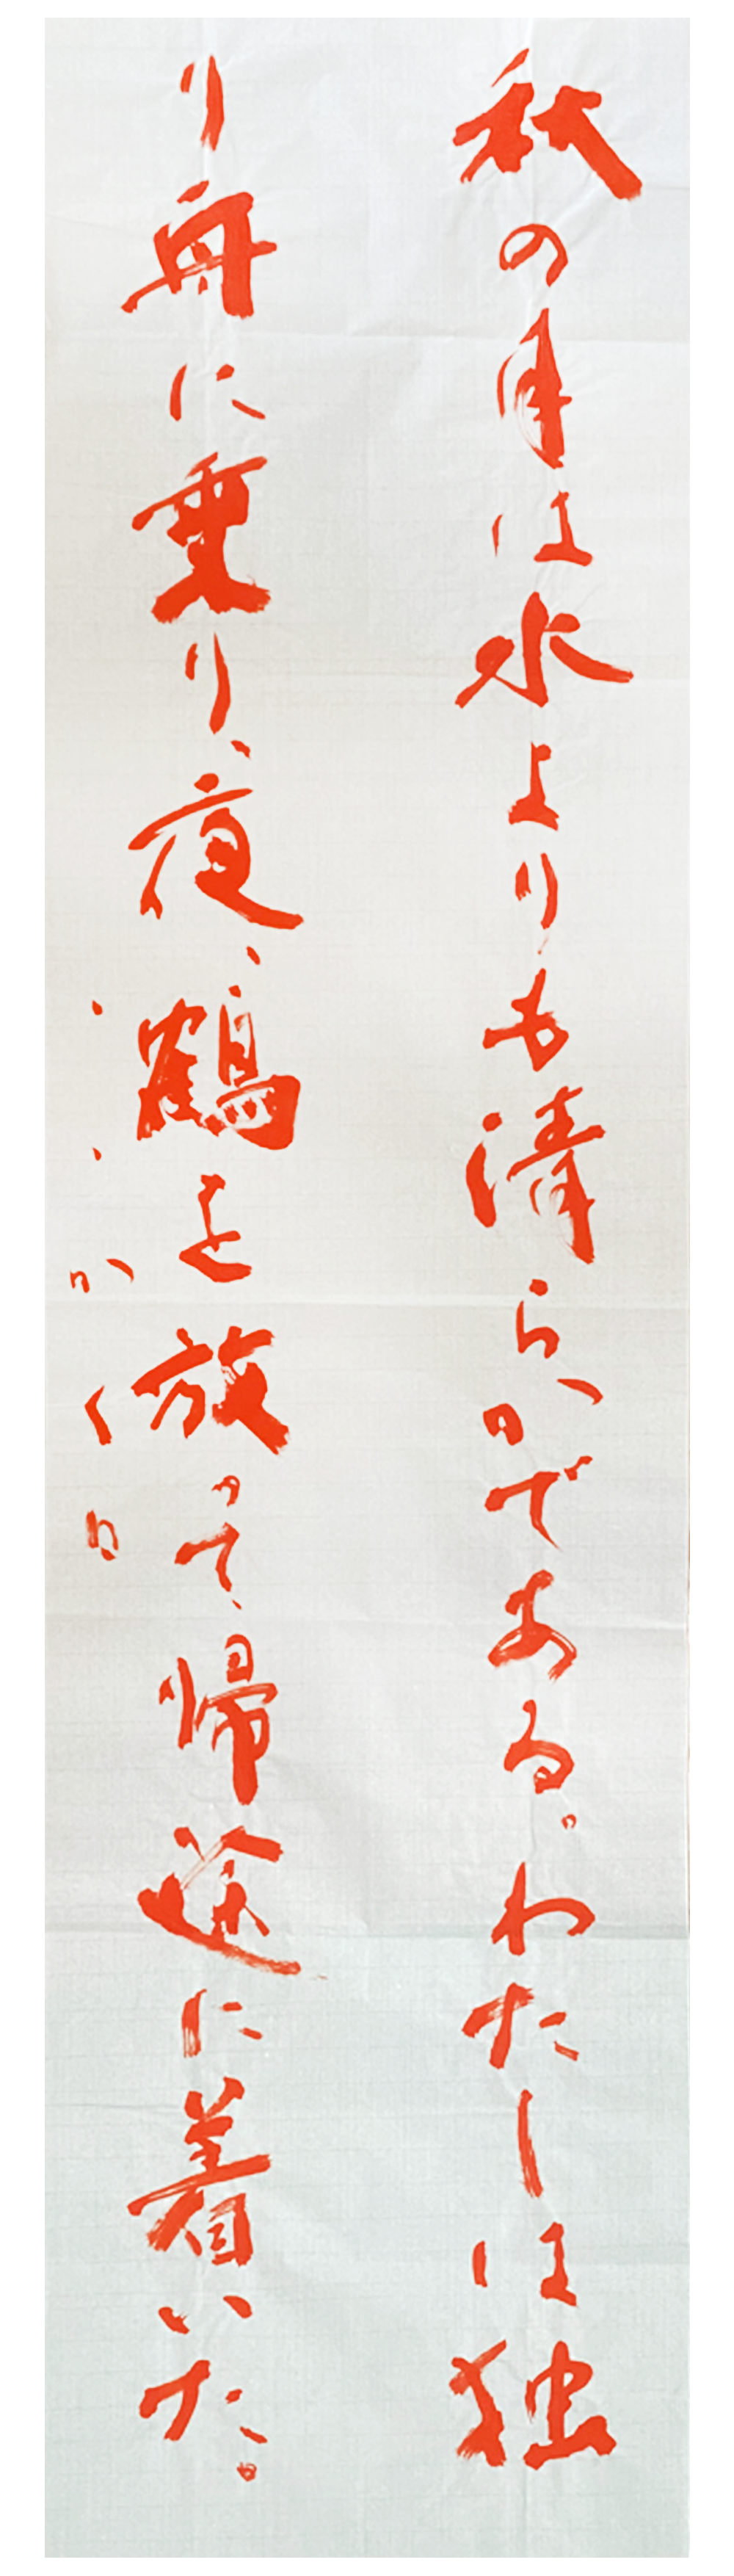 秋の月は水よりも清らかである。わたしは独
り舟に乗り、夜、鶴を放って、帰途に着いた。
かくね